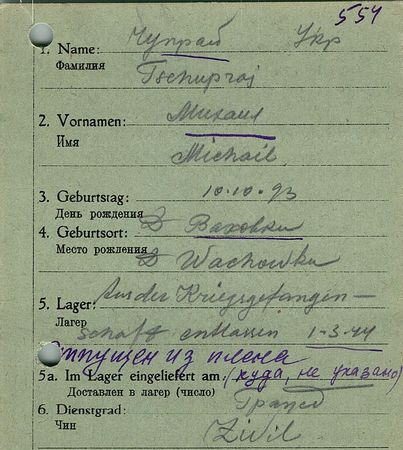 554
1. Name: Чупрай Укр
Фамилия Tschupraj
2. Vornamen: Михаил
Имя Michail
3. Geburtstag: 10.10.93
День рождения
4. Geburtsort: Д Ваховка
Место рождения D Wachowka
5. Lager: Aus der Kriegsgefangen-
Лагер schaft entlassen 1-3-44
Отпущен из плена
5a. Im Lager eingeliefert am: (куда, не указано)
Доставлен в лагер (число)
6. Dienstgrad: Гражд
Чин Zivil